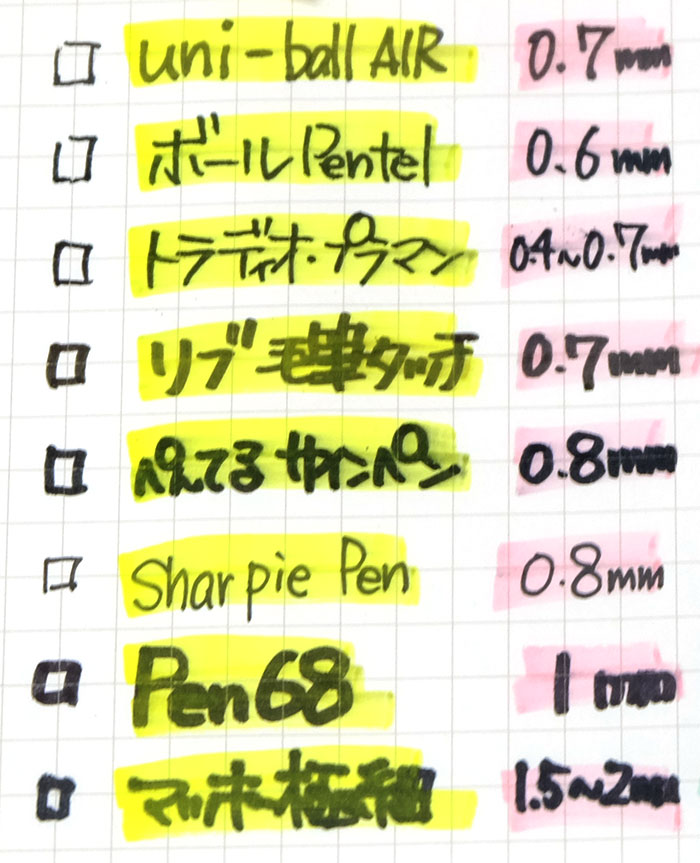 □ uni-ball AIR 0.7mm
□ ボールPentel 0.6mm
□ トラディオ・プラマン 0.4~0.7mm
□ リブ毛筆タッチ 0.7mm
□ ぺんてるサインペン 0.8mm
□ Sharpie Pen 0.8mm
□ Pen68 1mm
□ マッキー極細 1.5~2mm